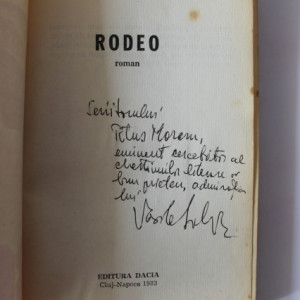 RODEO
roman
Scriitorului
Titus Moraru,
eminent cercetător al
chestiunilor literare și
bun prieten, admirația
lui
EDITURA DACIA
Cluj-Napoca 1983